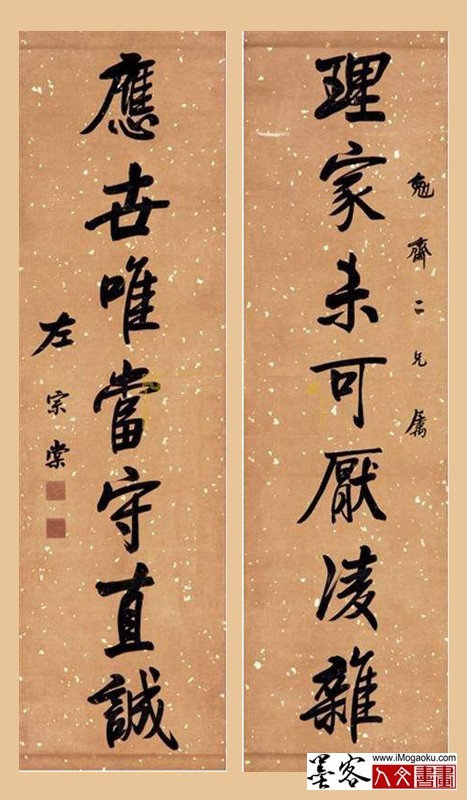 勉齋二兄屬
理家未可厭凌雜
應世唯當守直誠
左宗棠
墨客 www.iMogaoku.com
人文書畫